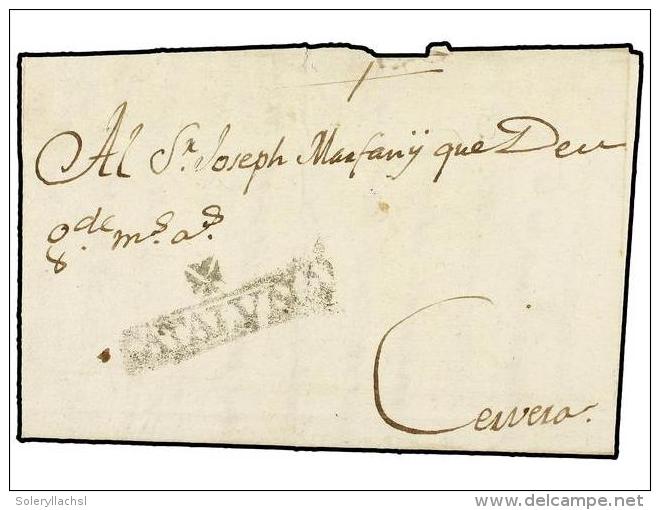 Al Sr. Joseph Marfany que Deu
gde. ms. as.
CATALVÑA
Cervera.
Soleryllachsl
delcampe.net